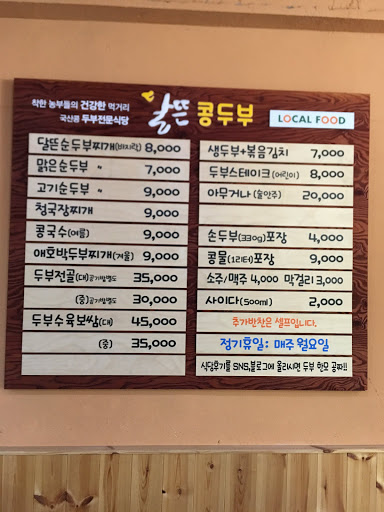 착한 농부들의 건강한 먹거리
국산콩 두부전문식당
달뜬 콩두부
LOCAL FOOD
달뜬순두부찌개(바지락) 8,000
맑은순두부 〃 7,000
고기순두부 〃 9,000
청국장찌개 9,000
콩국수(여름) 9,000
애호박두부찌개(겨울) 9,000
두부전골(대)공기밥별도 35,000
(중)공기밥별도 30,000
두부수육보쌈(대) 45,000
(중) 35,000
생두부+볶음김치 7,000
두부스테이크(어린이) 8,000
아무거나(술안주) 20,000
손두부(330g)포장 4,000
콩물(1리터)포장 9,000
소주/맥주 4,000 막걸리 3,000
사이다(500ml) 2,000
추가반찬은 셀프입니다.
정기휴일: 매주 월요일
식당후기를 SNS,블로그에 올리시면 두부 한모 공짜!!